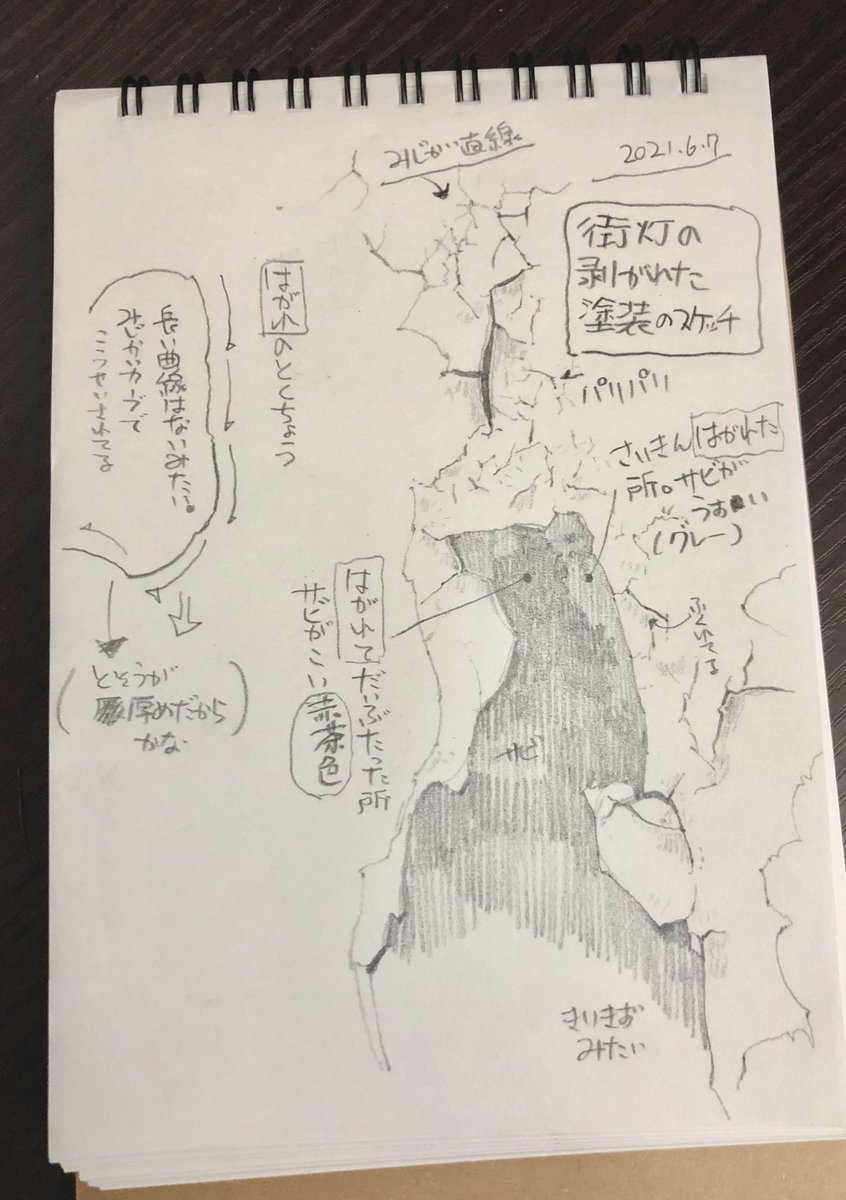 みじかい直線
2021.6.7
街灯の
剥がれた
塗装のスケッチ
パリパリ
さいきんはがれた
所。サビが
うすい
(グレー)
ふくれてる
はがれのとくちょう
長い曲線はないみたい。
みじかいカーブで
こうせいされてる
(とそうが
厚めだから
かな)
はがれてだいぶたった所
サビがこい赤茶色
サビ
きりきず
みたい